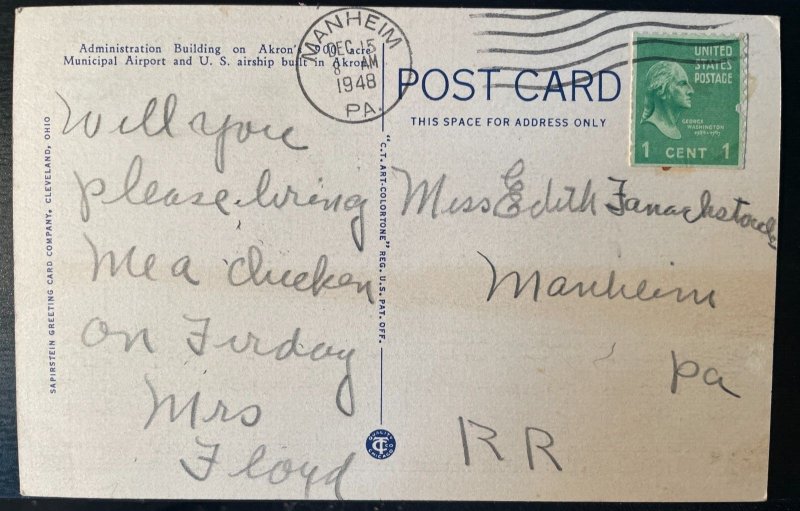 Administration Building on Akron's 900 acre
Municipal Airport and U. S. airship built in Akron.
MANHEIM
DEC 15
8 AM
1948
PA.
POST CARD
THIS SPACE FOR ADDRESS ONLY
UNITED
STATES
POSTAGE
GEORGE
WASHINGTON
1789-1797
1 CENT 1
SAPIRSTEIN GREETING CARD COMPANY, CLEVELAND, OHIO
Will you
please bring
Me a chicken
on Firday
Mrs
Floyd
"C.T. ART-COLORTONE" REG. U.S. PAT. OFF.
QUALITY
CT
CHICAGO
Miss Edith
Manheim
Pa
RR